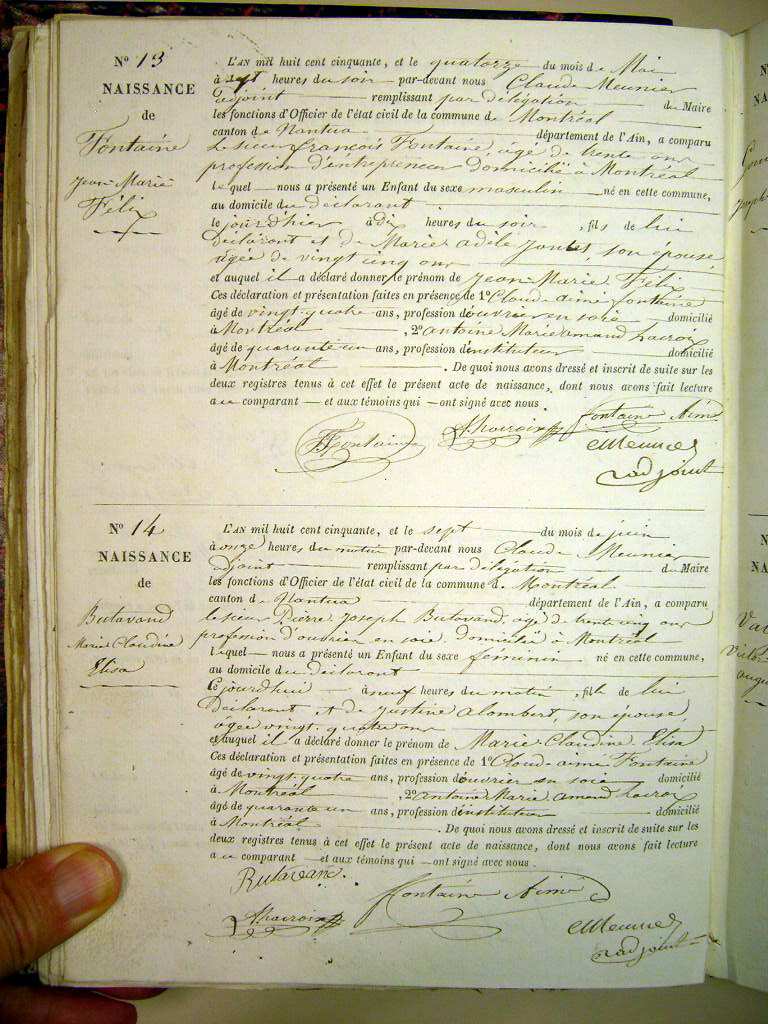 N° 13
NAISSANCE
de
Fontaine
Jean-Marie
Félix
L'AN mil huit cent cinquante, et le quatorze du mois de Mai
à sept heures du soir par-devant nous Claude Meunier
adjoint remplissant par délégation du Maire
les fonctions d'Officier de l'état civil de la commune de Montréal
canton de Nantua département de l'Ain, a comparu
Le sieur françois Fontaine, âgé de trente ans
profession d'entrepreneur domicilié à Montréal
lequel nous a présenté un Enfant du sexe masculin né en cette commune,
au domicile du déclarant
le jourd'hier à dix heures du soir, fils de lui
Déclarant et de Marie adèle, son épouse
âgée de vingt cinq ans
et auquel il a déclaré donner le prénom de Jean-Marie Félix
Ces déclaration et présentation faites en présence de 1° Claude aimé fontaine
âgé de vingt-quatre ans, profession d'ouvrier en soie domicilié
à Montréal, 2° antoine Marie amand Lacroix
âgé de quarante un ans, profession d'instituteur domicilié
à Montréal. De quoi nous avons dressé et inscrit de suite sur les
deux registres tenus à cet effet le présent acte de naissance, dont nous avons fait lecture
au comparant et aux témoins qui ont signé avec nous
Fontaine
ALacroix
Fontaine Aimé
CMeunier
adjoint
N° 14
NAISSANCE
de
Butavand
Marie Claudine
Elisa
L'AN mil huit cent cinquante, et le sept du mois de juin
à onze heures du matin par-devant nous Claude Meunier
adjoint remplissant par délégation du Maire
les fonctions d'Officier de l'état civil de la commune de Montréal
canton de Nantua département de l'Ain, a comparu
le sieur Pierre Joseph Butavand, âgé de trente cinq ans
profession d'ouvrier en soie domicilié à Montréal
lequel nous a présenté un Enfant du sexe féminin né en cette commune,
au domicile du déclarant
Ce jourd'hui à neuf heures du matin, fille de lui
Déclarant et de Justine alombert, son épouse,
âgée vingt-quatre ans
et auquel il a déclaré donner le prénom de Marie-Claudine Elisa
Ces déclaration et présentation faites en présence de 1° Claude aimé Fontaine
âgé de vingt-quatre ans, profession d'ouvrier en soie domicilié
à Montréal, 2° antoine Marie amand Lacroix
âgé de quarante un ans, profession d'instituteur domicilié
à Montréal. De quoi nous avons dressé et inscrit de suite sur les
deux registres tenus à cet effet le présent acte de naissance, dont nous avons fait lecture
au comparant et aux témoins qui ont signé avec nous
Butavand.
Fontaine Aimé
ALacroix
CMeunier
adjoint